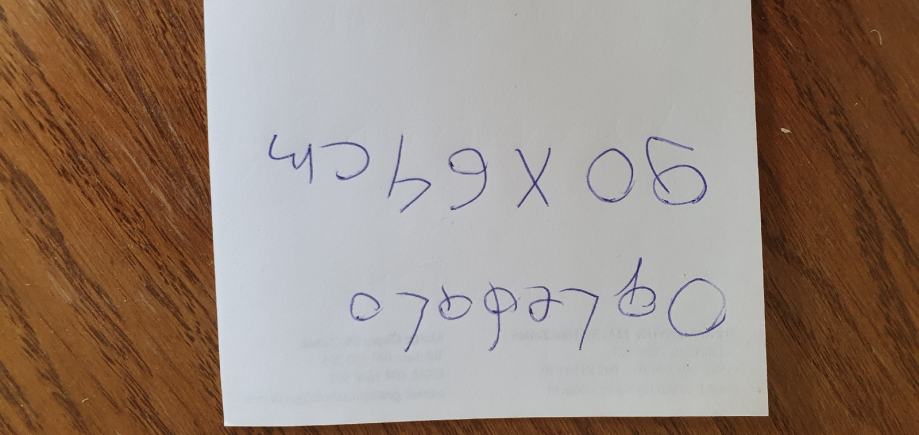 Ogledalo
90 X 64 cm